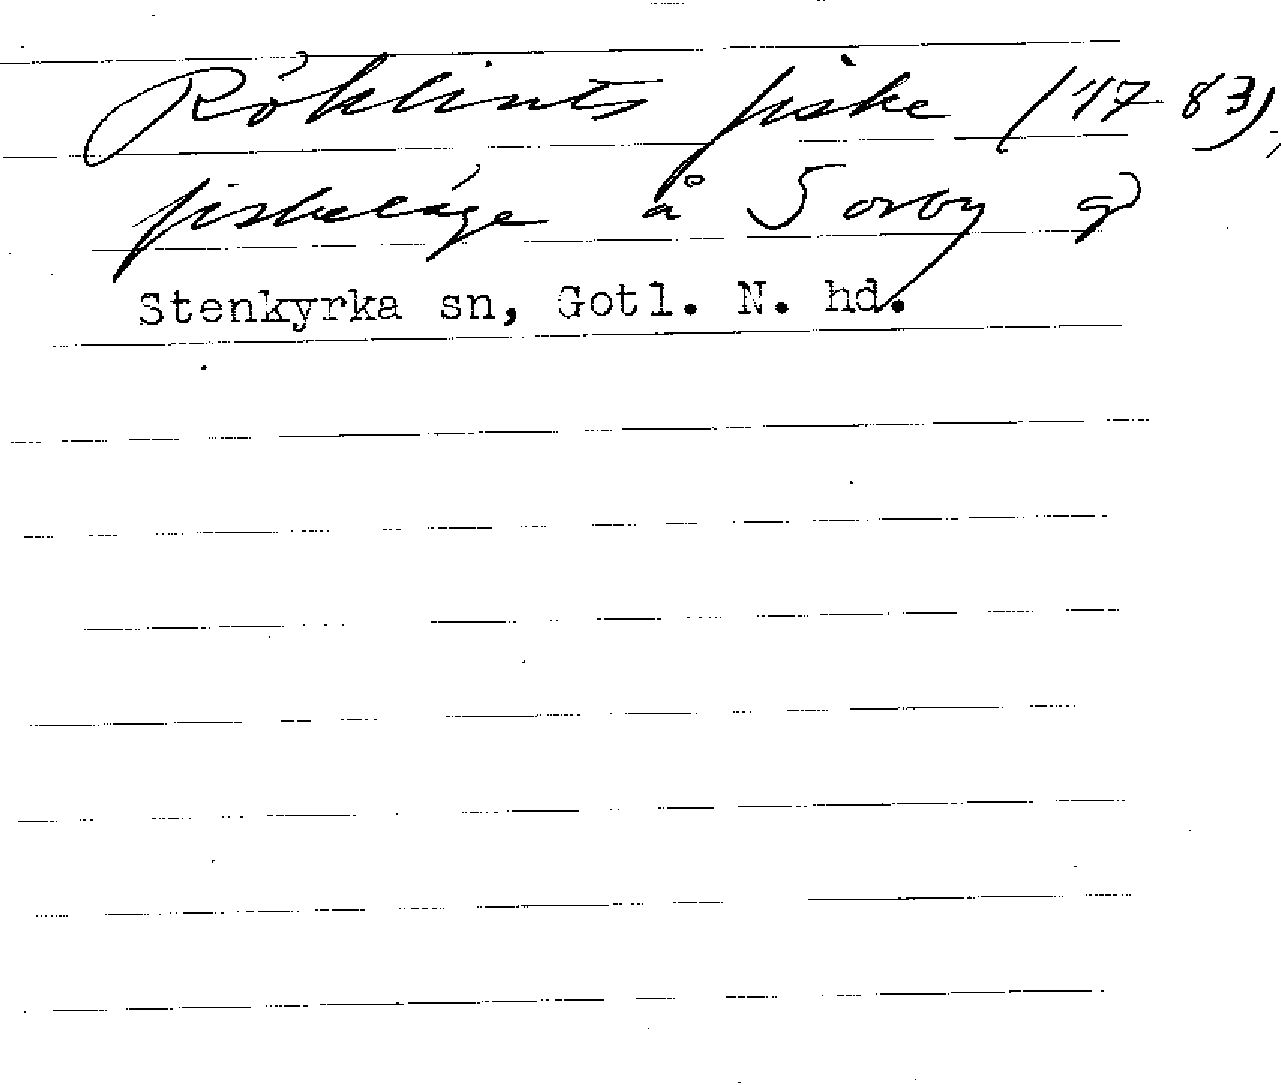 Röklints fiske (1783),
fiskeläge å Sorby gd
Stenkyrka sn, Gotl. N. hd.